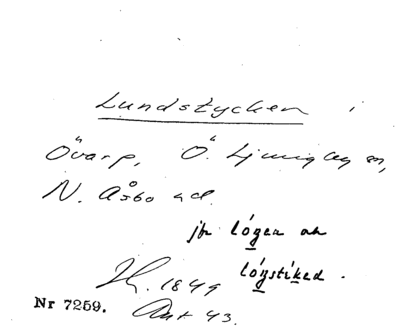 Lundstycken i
Övarp, Ö. Ljungby sn,
N. Åsbo hd.
jfr lógen ok
lóystiked.
1849
Nr 7259. Ant 43.